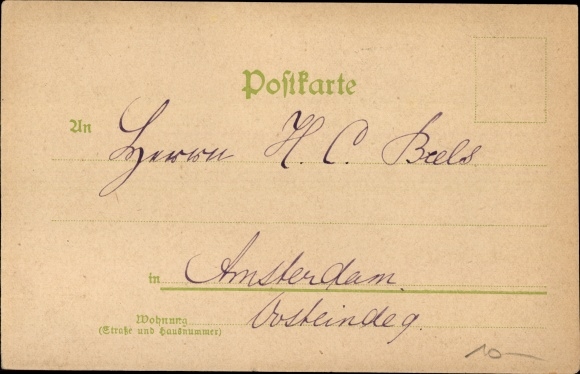 Postkarte
An Herrn H. C. Beels
in Amsterdam.
Wohnung Oosteinde 9.
(Straße und Hausnummer)
10—